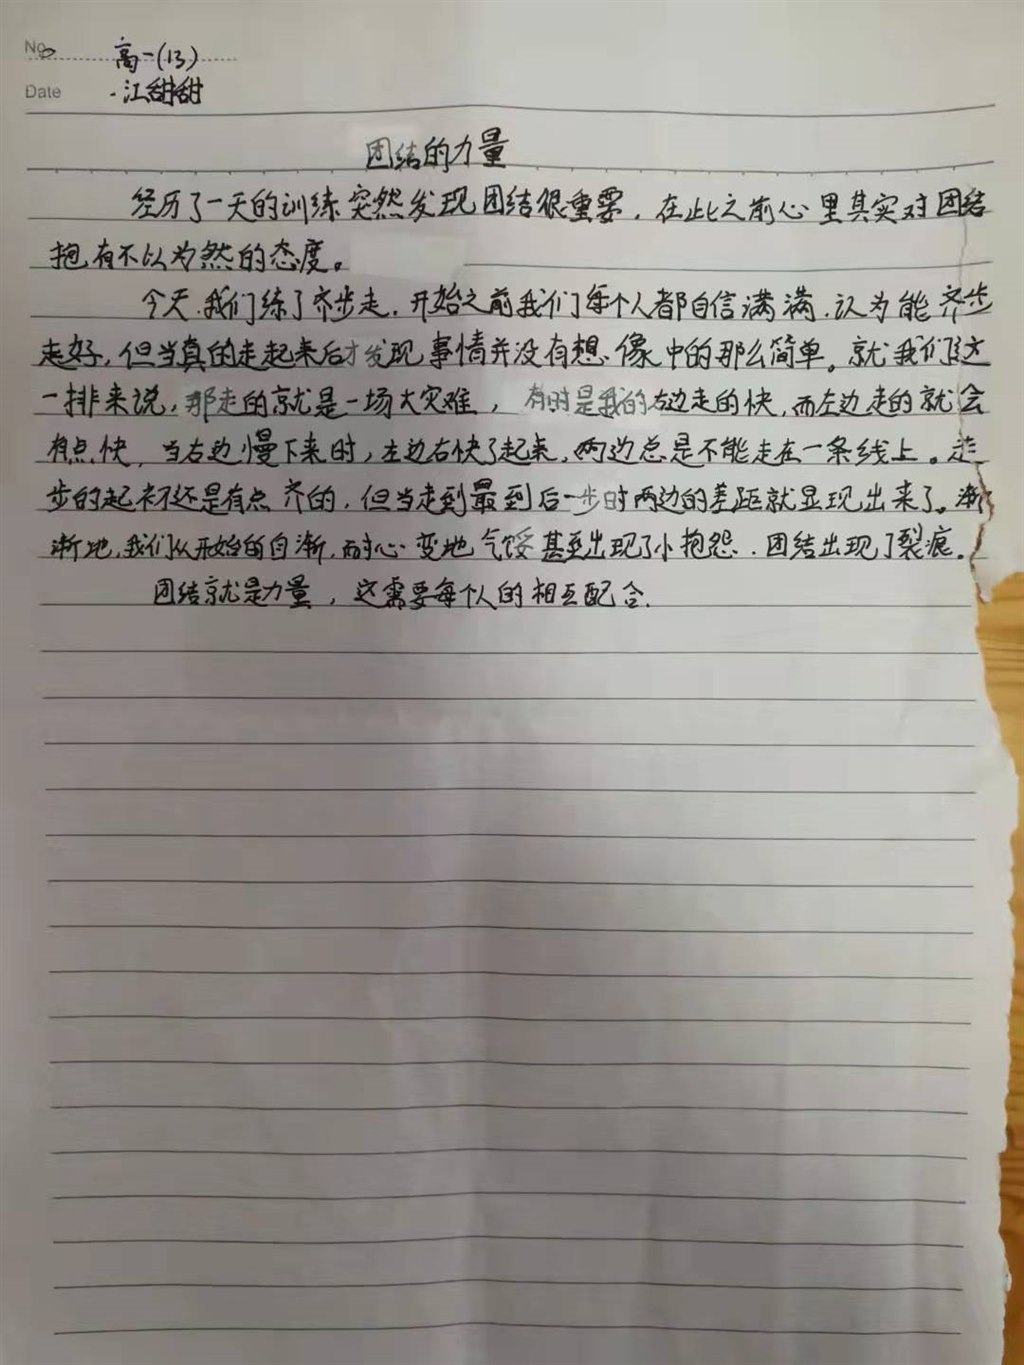 No.
高一(13)
Date
·江甜甜
团结的力量
经历了一天的训练突然发现团结很重要，在此之前心里其实对团结
抱有不以为然的态度。
今天，我们练了齐步走，开始之前我们每个人都自信满满，认为能齐步
走好，但当真的走起来后才发现事情并没有想像中的那么简单。就我们这
一排来说，那走的就是一场大灾难，有时是我的右边走的快，而左边走的就会
有点快，当右边慢下来时，左边右快了起来，两边总是不能走在一条线上。走
步的起初还是有点齐的，但当走到最到后一步时两边的差距就显现出来了。渐
渐地，我们从开始的自渐，耐心变地气馁甚至出现了小抱怨，团结出现了裂痕。
团结就是力量，这需要每个人的相互配合.